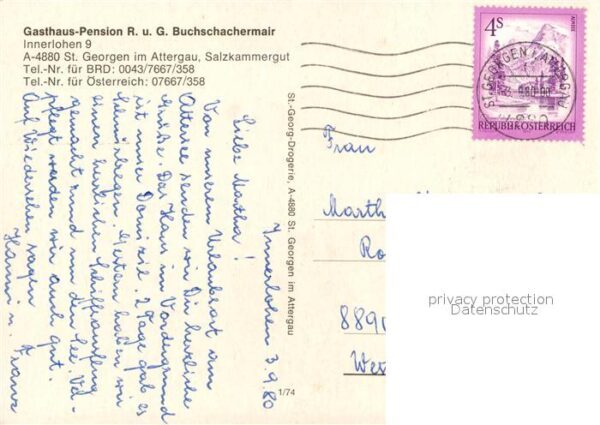 Gasthaus-Pension R. u. G. Buchschachermair
Innerlohen 9
A-4880 St. Georgen im Attergau, Salzkammergut
Tel.-Nr. für BRD: 0043/7667/358
Tel.-Nr. für Österreich: 07667/358
Innerlohen 3.9.80
Liebe Martha!
Von unserem Urlaubsort am
Attersee senden wir Dir herzliche
Grüße. Das Haus im Vordergrund
ist unser Domizil. 2 Tage gab es
Gestern haben wir
einen herrlichen Schiffsausflug
gemacht rund um den See. Ver-
pflegt werden wir auch gut.
Auf Wiedersehen sagen
Hanni u. Franz
St.-Georg-Drogerie, A-4880 St. Georgen im Attergau
1/74
4S
REPUBLIK ÖSTERREICH
ST. GEORGEN
4880
Frau
Marth
8890
privacy protection
Datenschutz